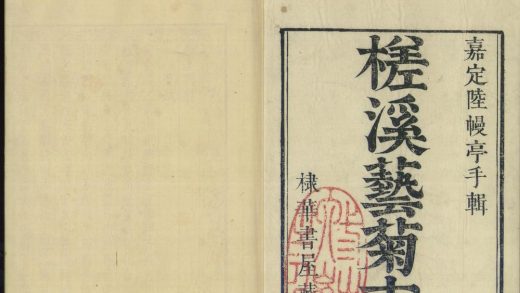 嘉定陸幔亭手輯
槎溪藝菊
棣華書屋